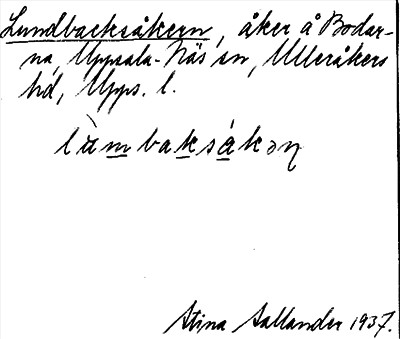 Lundbacksåkern, åker å Bodar-
na, Uppsala-Näs sn, Ulleråkers
hd, Upps. l.
lùmbaksákəṇ
Stina Sallander 1937.